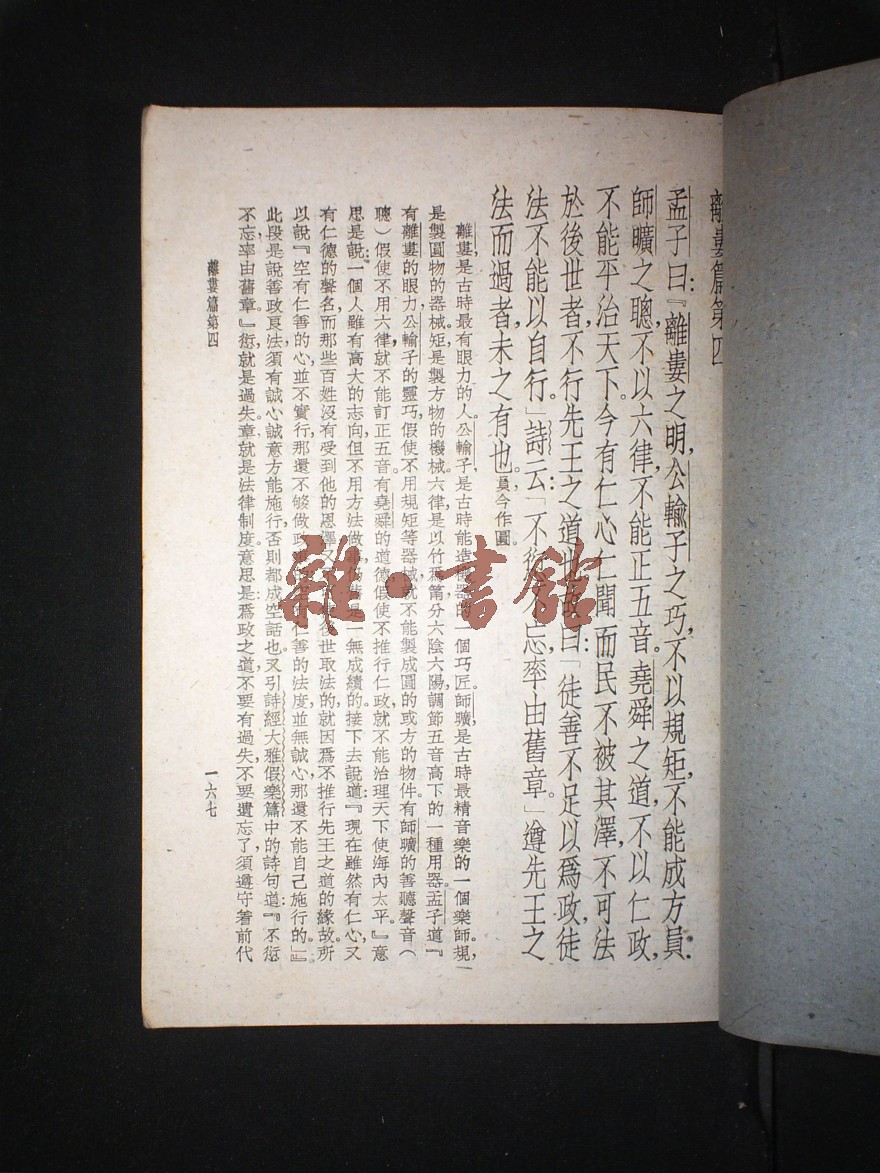 離婁篇第四
孟子曰：『離婁之明，公輸子之巧，不以規矩，不能成方員。
師曠之聰，不以六律，不能正五音。堯舜之道，不以仁政，
不能平治天下。今有仁心仁聞，而民不被其澤，不可法
於後世者，不行先王之道也。故曰：「徒善不足以爲政，徒
法不能以自行。」詩云：「不愆不忘，率由舊章。」遵先王之
法而過者，未之有也。員今作圓。
離婁是古時最有眼力的人。公輸子是古時能造機器的一個巧匠。師曠是古時最精音樂的一個樂師。規
是製圓物的器械，矩是製方物的機械。六律是以竹爲筩，分六陰六陽，調節五音高下的一種用器。孟子道：『
有離婁的眼力，公輸子的靈巧，假使不用規矩等器械，就不能製成圓的或方的物件。有師曠的善聽聲音（
聰）假使不用六律，就不能訂正五音。有堯舜的道德，假使不推行仁政，就不能治理天下，使海內太平。』意
思是說：一個人雖有高大的志向，但不用方法做事，是一無成績的。接下去說道：『現在雖然有仁心，又
有仁德的聲名，而那些百姓沒有受到他的恩澤，又世取法的，就因爲不推行先王之道的緣故。所
以說：『空有仁善的心，並不實行，那還不够做政仁善的法度，並無誠心，那還不能自己施行的。』』
此段是說善政良法，須有誠心誠意，方能施行，否則都成空話也。又引詩經大雅假樂篇中的詩句道：『不愆
不忘，率由舊章。』愆，就是過失。章，就是法律制度。意思是：爲政之道，不要有過失，不要遺忘了，須遵守着前代
離婁篇第四
一六七
雜·書館